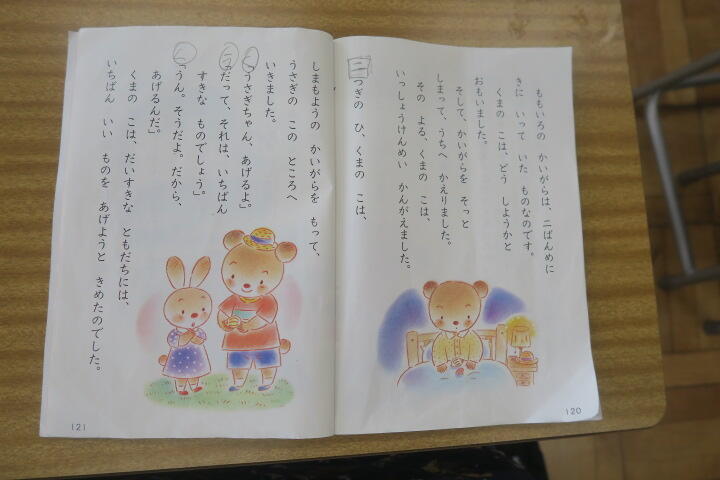 ももいろの　かいがらは、二ばんめに
きに　いって　いた　ものなのです。
くまの　こは、どう　しようかと
おもいました。
そして、かいがらを　そっと
しまって、うちへ　かえりました。
その　よる、くまの　こは、
いっしょうけんめい　かんがえました。
120
二
つぎの　ひ、くまの　こは、
しまもようの　かいがらを　もって、
うさぎの　この　ところへ
いきました。
「うさぎちゃん、あげるよ。」
「だって、それは、いちばん
すきな　ものでしょう。」
「うん。そうだよ。だから、
あげるんだ。」
くまの　こは、だいすきな　ともだちには、
いちばん　いい　ものを　あげようと　きめたのでした。
121